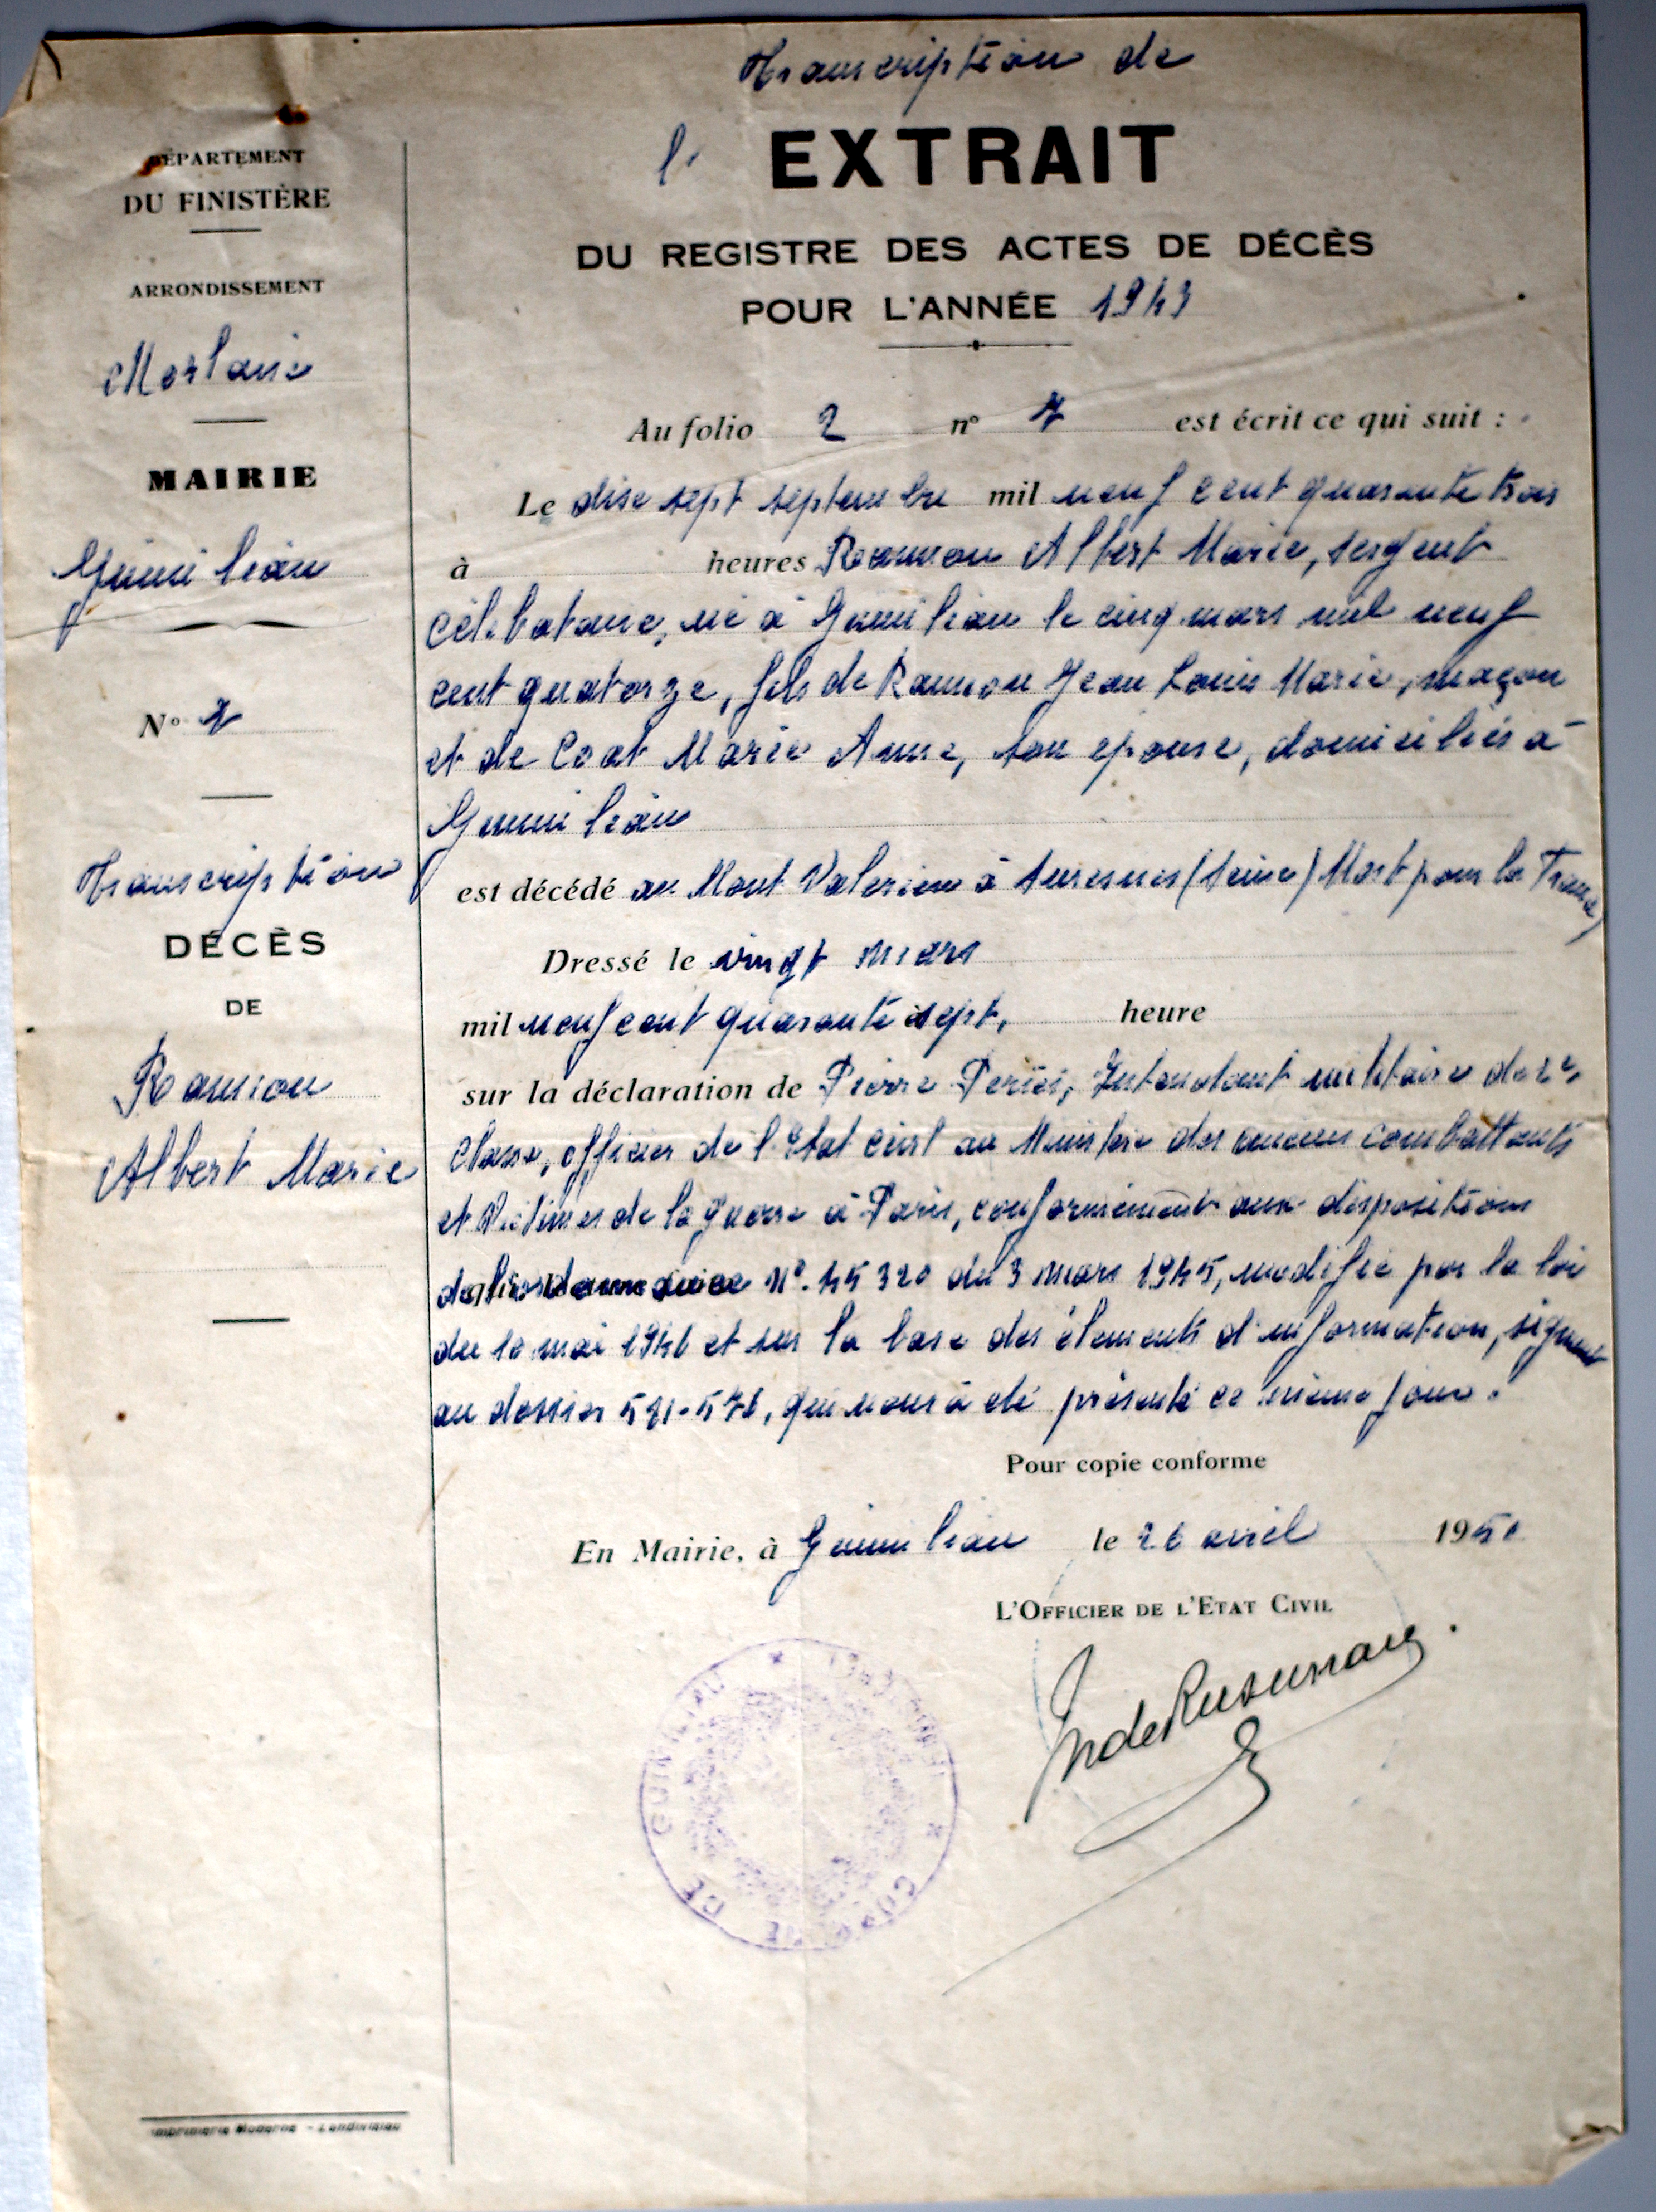 Transcription de
l' EXTRAIT
DU REGISTRE DES ACTES DE DÉCÈS
POUR L'ANNÉE 1943
DÉPARTEMENT
DU FINISTÈRE
ARRONDISSEMENT
Morlaix
MAIRIE
Guimiliau
N° 7
Transcription
DÉCÈS
DE
Ramon
Albert Marie
Imprimerie Moderne - Landivisiau
Au folio 2 n° 7 est écrit ce qui suit :
Le dix sept septembre mil neuf cent quarante trois
à heures Ramon Albert Marie, sergent
célibataire, né à Guimiliau le cinq mars mil neuf
cent quatorze, fils de Ramon Jean Louis Marie, maçon
et de Coat Marie Anne, son épouse, domiciliés à
Guimiliau
est décédé au Mont Valerien à Suresnes (Seine) Mort pour la France
Dressé le vingt mars
mil neuf cent quarante sept, heure
sur la déclaration de Pierre Intendant militaire de 2e
classe, officier de l'Etat civil au Ministère des anciens combattants
et Victimes de la guerre à Paris, conformément aux dispositions
N°. 45 320 du 3 mars 1945, modifié par la loi
du 10 mai 1946 et sur la base des élements d'information,
au dossier qui nous à été présenté ce même jour.
Pour copie conforme
En Mairie, à Guimiliau le 26 avril 1950
L'OFFICIER DE L'ETAT CIVIL
COMMUNE DE GUIMILIAU